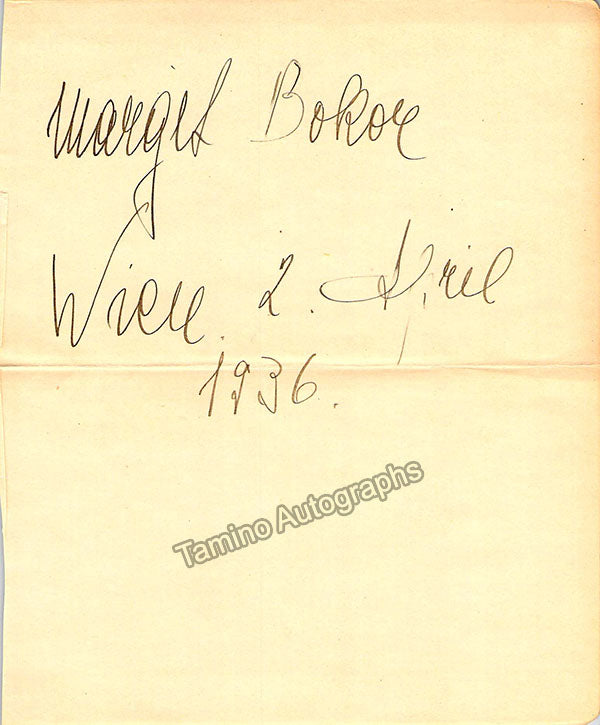 Margit Bokor
Wien. 2. April
1936.
Tamino Autographs